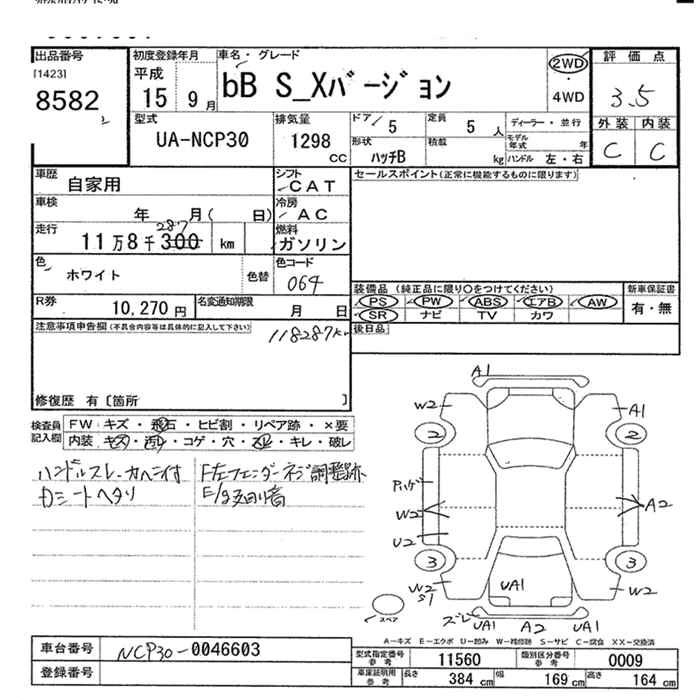 出品番号
[1423]
8582
初度登録年月
平成
15 年 9 月
車名・グレード
bB S_Xバージョン
2WD
・
4WD
評価点
3.5
外装 内装
C C
型式
UA-NCP30
排気量
1298
CC
ドア 5
定員 5 人
形状
ハッチB
積載 kg
ディーラー・並行
モデル年式 年
ハンドル 左・右
車歴
自家用
シフト
CAT
車検
年 月( 日)
冷房
AC
走行
287
11万8千300 km
燃料
ガソリン
色
ホワイト
色替
色コード
064
R券
10,270円
名変通知期限
月 日
セールスポイント(正常に機能するものに限ります)
装備品 (純正品に限り○をつけてください)
PS PW ABS エアB AW
SR ナビ TV カワ
新車保証書
有・無
後日品
注意事項申告欄(不具合内容等は具体的に記入して下さい)
118287km
修復歴 有〔箇所 〕
検査員記入欄
FW キズ・飛石・ヒビ割・リペア跡・×要
内装 キズ・汚レ・コゲ・穴・スレ・キレ・破レ
ハンドルスレ
Dシートヘタリ
F左フェンダーネジ調整跡
A1
W2
A1
2
2
W2
A2
U2
3
3
W2
S1
UA1
W2
スペア
ズレ UA1 A2 UA1
A-キズ E-エクボ U-凹み W-補修跡 S-サビ C-腐食 XX-交換済
車台番号
NCP30-0046603
登録番号
型式指定番号
参考
11560
類別区分番号
参考
0009
車庫証明用
参考
長さ 384 cm
幅 169 cm
高さ 164 cm